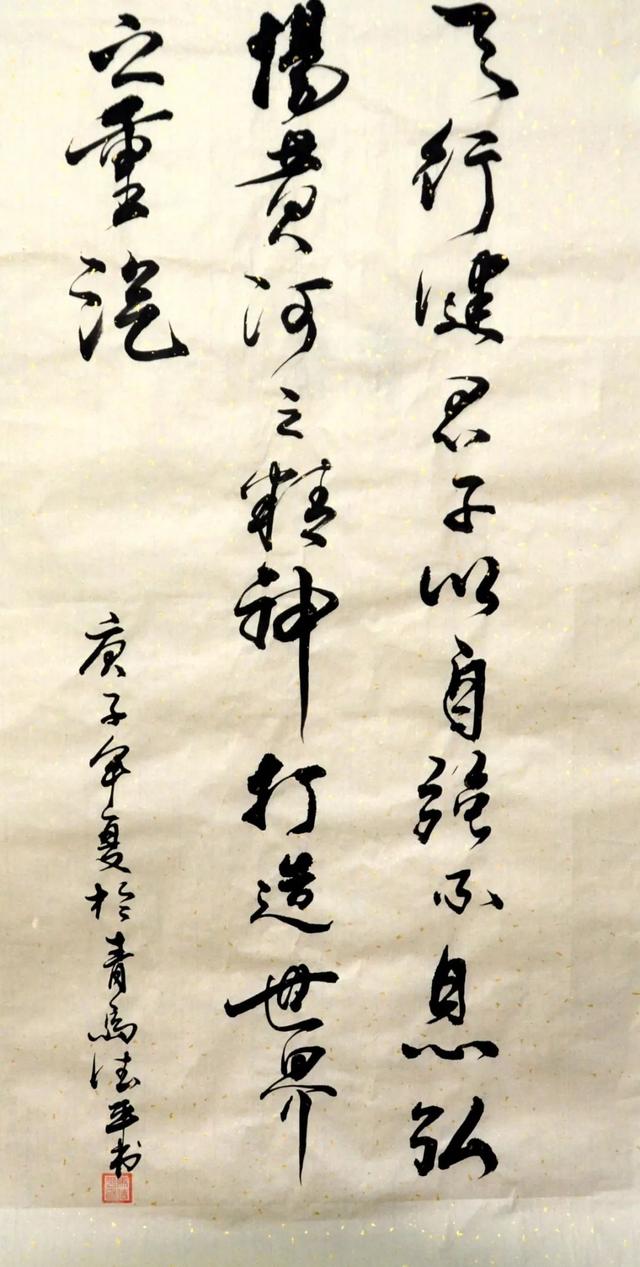 天行健君子以自強不息弘
揚黄河之精神打造世界
之重汽
庚子年夏於青島德平书